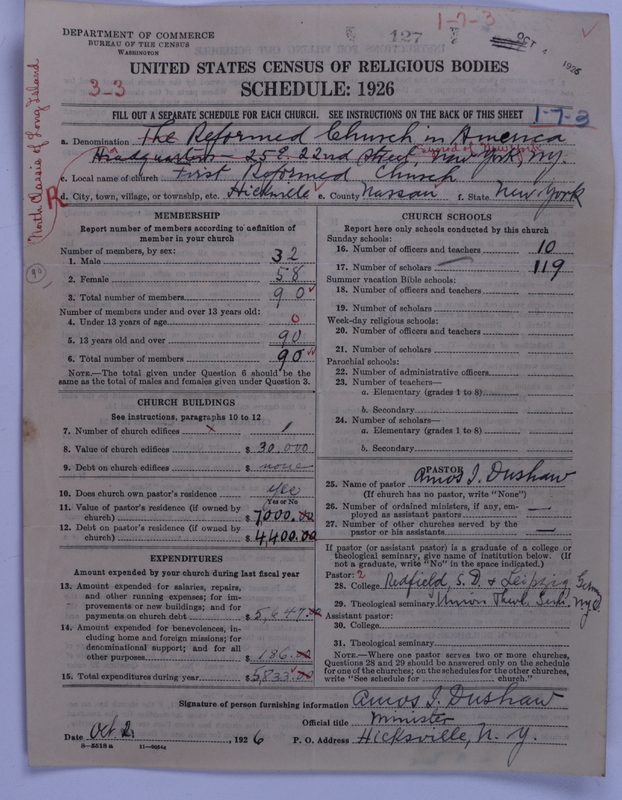 1-7-3
DEPARTMENT OF COMMERCE
BUREAU OF THE CENSUS
WASHINGTON
127
OCT 4 1926
UNITED STATES CENSUS OF RELIGIOUS BODIES
3-3
SCHEDULE: 1926
FILL OUT A SEPARATE SCHEDULE FOR EACH CHURCH. SEE INSTRUCTIONS ON THE BACK OF THIS SHEET
1-7-3
North Classis of Long Island
R
90
a. Denomination The Reformed Church in America
Synod of New York
Headquarters - 25 E. 22nd Street, New York, N.Y.
c. Local name of church First Reformed Church
d. City, town, village, or township, etc. Hicksville e. County Nassau f. State New York
MEMBERSHIP
Report number of members according to definition of
member in your church
Number of members, by sex:
1. Male 32
2. Female 58
3. Total number of members 90
Number of members under and over 13 years old:
4. Under 13 years of age 0
5. 13 years old and over 90
6. Total number of members 90
NOTE.—The total given under Question 6 should be the
same as the total of males and females given under Question 3.
CHURCH BUILDINGS
See instructions, paragraphs 10 to 12
7. Number of church edifices x 1
8. Value of church edifices $ 30,000
9. Debt on church edifices $ none
10. Does church own pastor's residence yes
Yes or No
11. Value of pastor's residence (if owned by
church) $ 7000.00
12. Debt on pastor's residence (if owned by
church) $ 4400.00
EXPENDITURES
Amount expended by your church during last fiscal year
13. Amount expended for salaries, repairs,
and other running expenses; for im-
provements or new buildings; and for
payments on church debt $ 5,647.00
14. Amount expended for benevolences, in-
cluding home and foreign missions; for
denominational support; and for all
other purposes $ 186.00
15. Total expenditures during year $ 5833.00
CHURCH SCHOOLS
Report here only schools conducted by this church
Sunday schools:
16. Number of officers and teachers 10
17. Number of scholars 119
Summer vacation Bible schools:
18. Number of officers and teachers
19. Number of scholars
Week-day religious schools:
20. Number of officers and teachers
21. Number of scholars
Parochial schools:
22. Number of administrative officers
23. Number of teachers—
a. Elementary (grades 1 to 8)
b. Secondary
24. Number of scholars—
a. Elementary (grades 1 to 8)
b. Secondary
PASTOR
25. Name of pastor Amos I. Dushaw
(If church has no pastor, write "None")
26. Number of ordained ministers, if any, em-
ployed as assistant pastors —
27. Number of other churches served by the
pastor or his assistants —
If pastor (or assistant pastor) is a graduate of a college or
theological seminary, give name of institution below. (If
not a graduate, write "No" in the space indicated.)
Pastor: 2
28. College Redfield, S.D. & Leipzig, Germ
29. Theological seminary Union Theol. Sem. NyC
Assistant pastor:
30. College
31. Theological seminary
NOTE.—Where one pastor serves two or more churches,
Questions 28 and 29 should be answered only on the schedule
for one of the churches; on the schedules for the other churches,
write "See schedule for church."
Signature of person furnishing information Amos I. Dushaw
Official title Minister
Date Oct 2, 1926 P. O. Address Hicksville, N. Y.
8-5518a 11-8034a